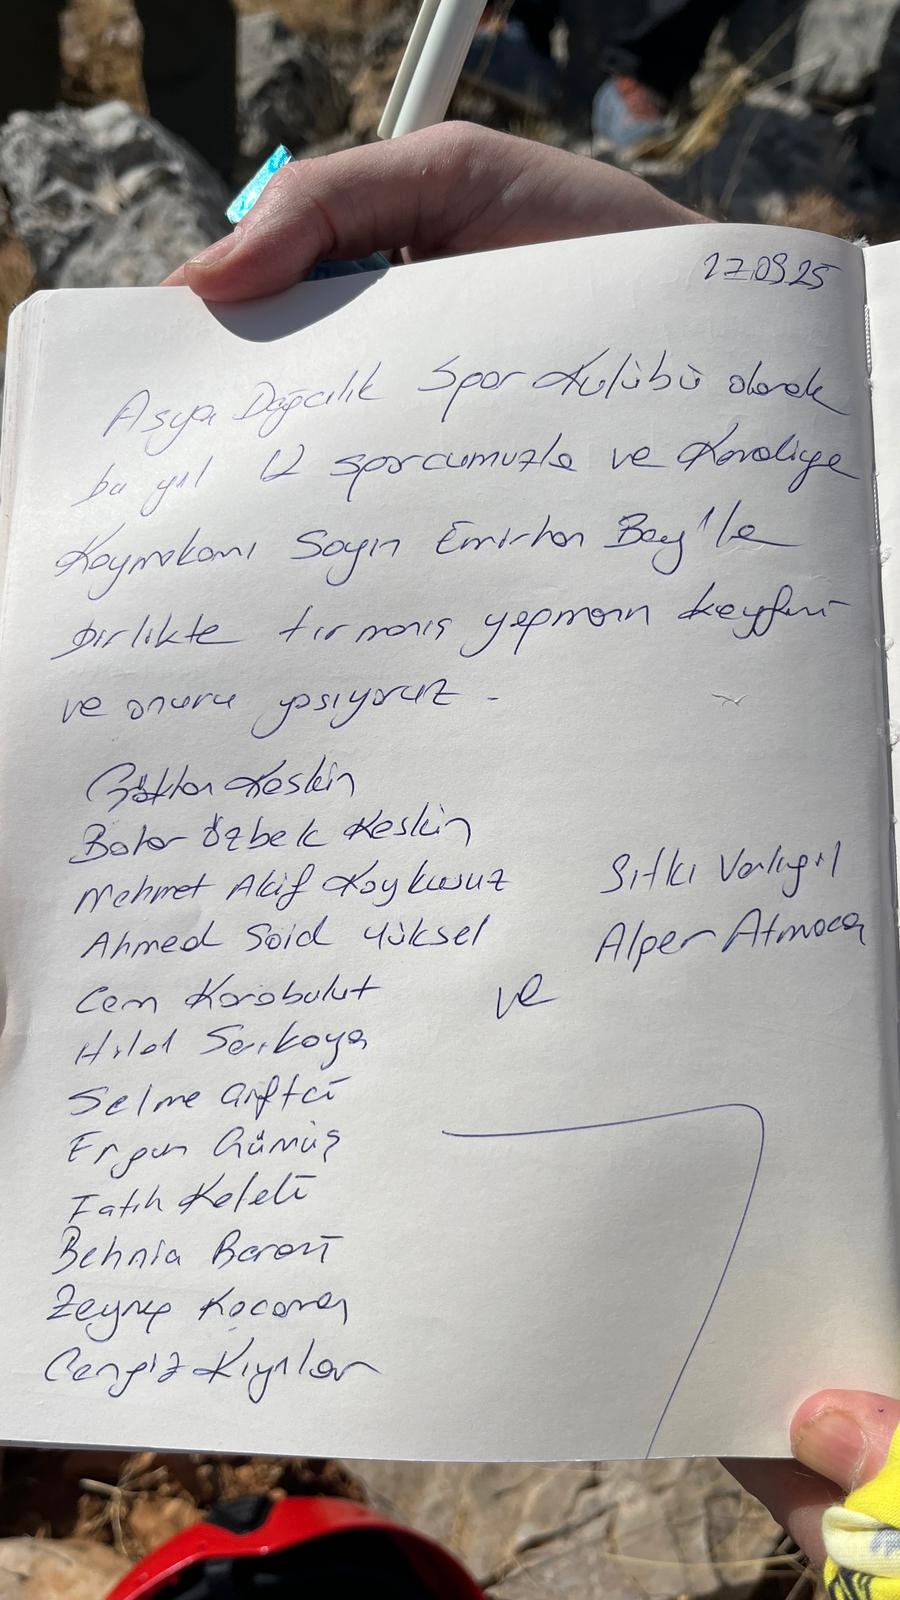 27.09.25
Asya Dağcılık Spor Kulübü olarak
bu yıl 12 sporcumuzla ve
Kaymakamı Sayın Emirhan Bey'le
birlikte tırmanış yapmanın keyfini
ve onuru yaşıyoruz.
Göktan Keskin
Bahar Özbek Keskin
Mehmet Akif Kaykusuz
Ahmed Said Yüksel
Cem Karabulut
Hilal Sarıkaya
Selme Çiftci
Ergun Gümüş
Fatih Keleti
Behnia Barazi
Zeynep Kocaman
Cengiz
Sıtkı Varlıgil
Alper Atmaca
ve